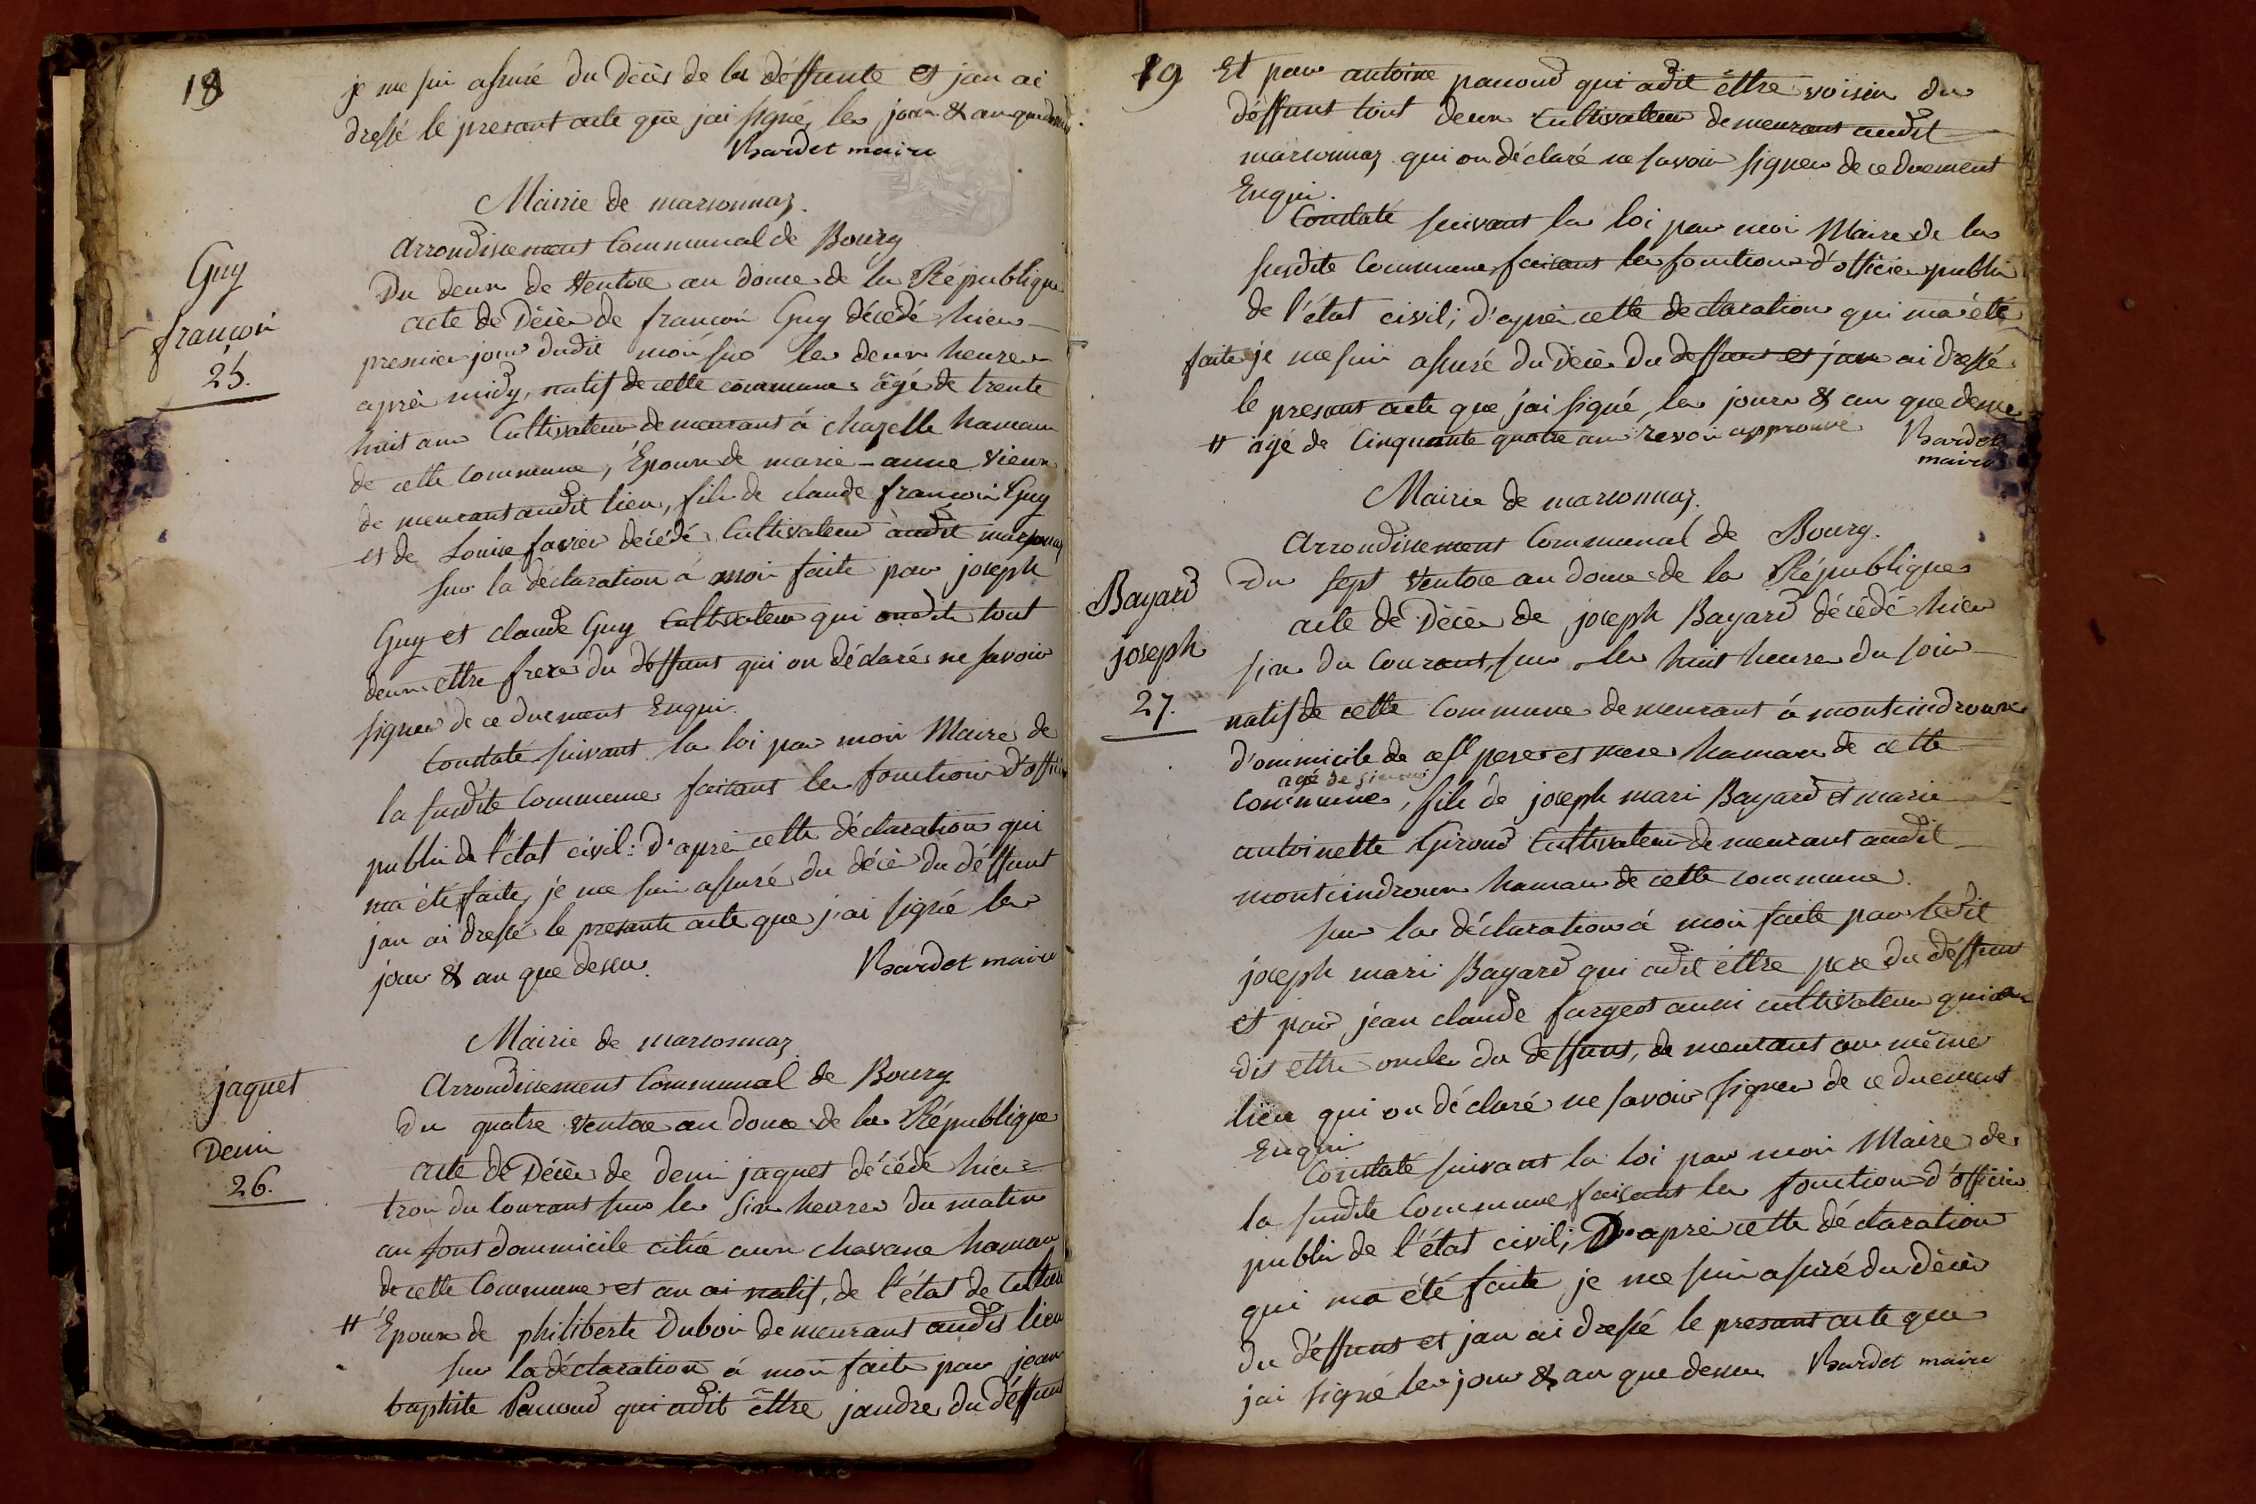 18
je me sui assuré du décès de la déffunte et jan ai
dressé le presant acte que jai signé, les jour & an que
Bardet maire
Mairie de marsonnaz.
arrondissement Communal de Bourg
Guy
françoi
25.
Du deux de Ventose an douze de la République
acte de Décès de françoi Guy décédé hier
premier jour dudit moi sur les deux heures
aprè midy, natif de cette commune, âgé de trente
huit ans Cultivateur demeurant à chazelle hamau
de cette commune, Époux de marie-anne vieux
de meurant audit lieu, fils de claude françoi Guy
et de Louise favier décédé, Cultivateur audit marsonnaz
sur la déclaration à moi faite par joseph
Guy et claude Guy Cultivateur qui ondit tout
deux ettre frere du déffunt qui on déclaré ne savoir
signer de ce duement Enqui.
Constaté suivant la loi par moi Maire de
la susdite Commune faisant les fonctions d'officier
publi de l'état civil: D'aprè cette déclaration qui
ma été faite, je me sui assuré du décè du déffunt
jan ai dressé le presante acte que j'ai signé les
jour & an que dessu.
Bardet maire
Mairie de marsonnaz
arrondissement Communal de Bourg
jaquet
Deni
26.
Du quatre Ventose an douze de la République
acte de Décès de deni jaquet décédé hier
troi du Courant sur les six heures du matin
au sont dommicile citué aux chavane hamau
de cette Commune et an ai natif, de l'état de Cultivateur
# Époux de philiberte Duboi demeurant audit lieu
sur la déclaration à moi faite par jean
baptiste Pauoud qui adit ettre jandre du déffunt
19
Et par antoine pauoud qui adit ettre voisin du
déffunt tout deux Cultivateur demeurant audit
marsonnaz qui on déclaré ne savoir signer de ce duement
Enqui.
Constaté suivant la loi par moi Maire de la
susdite Commune faisant les fonctions d'officier publi
de l'état civil; D'aprè cette declaration qui ma été
faite je me sui assuré du décè du deffunt et jan ai dressé
le presant acte que j'ai signé, les jours & an que dessu
# âgé de Cinquante quatre an revoi approuvé
Bardet
maire
Mairie de marsonnaz.
arrondissement Communal de Bourg.
Bayard
joseph
27.
Du sept Ventose an douze de la République
acte de Décè de joseph Bayard décédé hier
six du Courant, sur les huit heures du soir
natif de cette Commune demeurant à montcindroux
d'ommicile de ces pere et mere hamau de cette
agé de
Commune, fils de joseph mari Bayard et marie
antoinette Giroud Cultivateur demeurant audit
montcindroux hamau de cette commune.
sur la déclaration à moi faite par ledit
joseph mari Bayard qui adit éttre pere du déffunt
et par jean claude fargeot aussi cultivateur qui a
dit ettre oncle du deffunt, demeurant au même
lieu qui on déclaré ne savoir signer de ce duement
Enqui
Constaté suivant la loi par moi Maire de
la susdite Commune faisant les fonctions d'officier
publi de l'état civil; D'aprè cette déclaration
qui ma été faite je me sui asuré du décè
du déffunt et jan ai dressé le presant acte que
jai signé les jour & an que dessu
Bardet maire